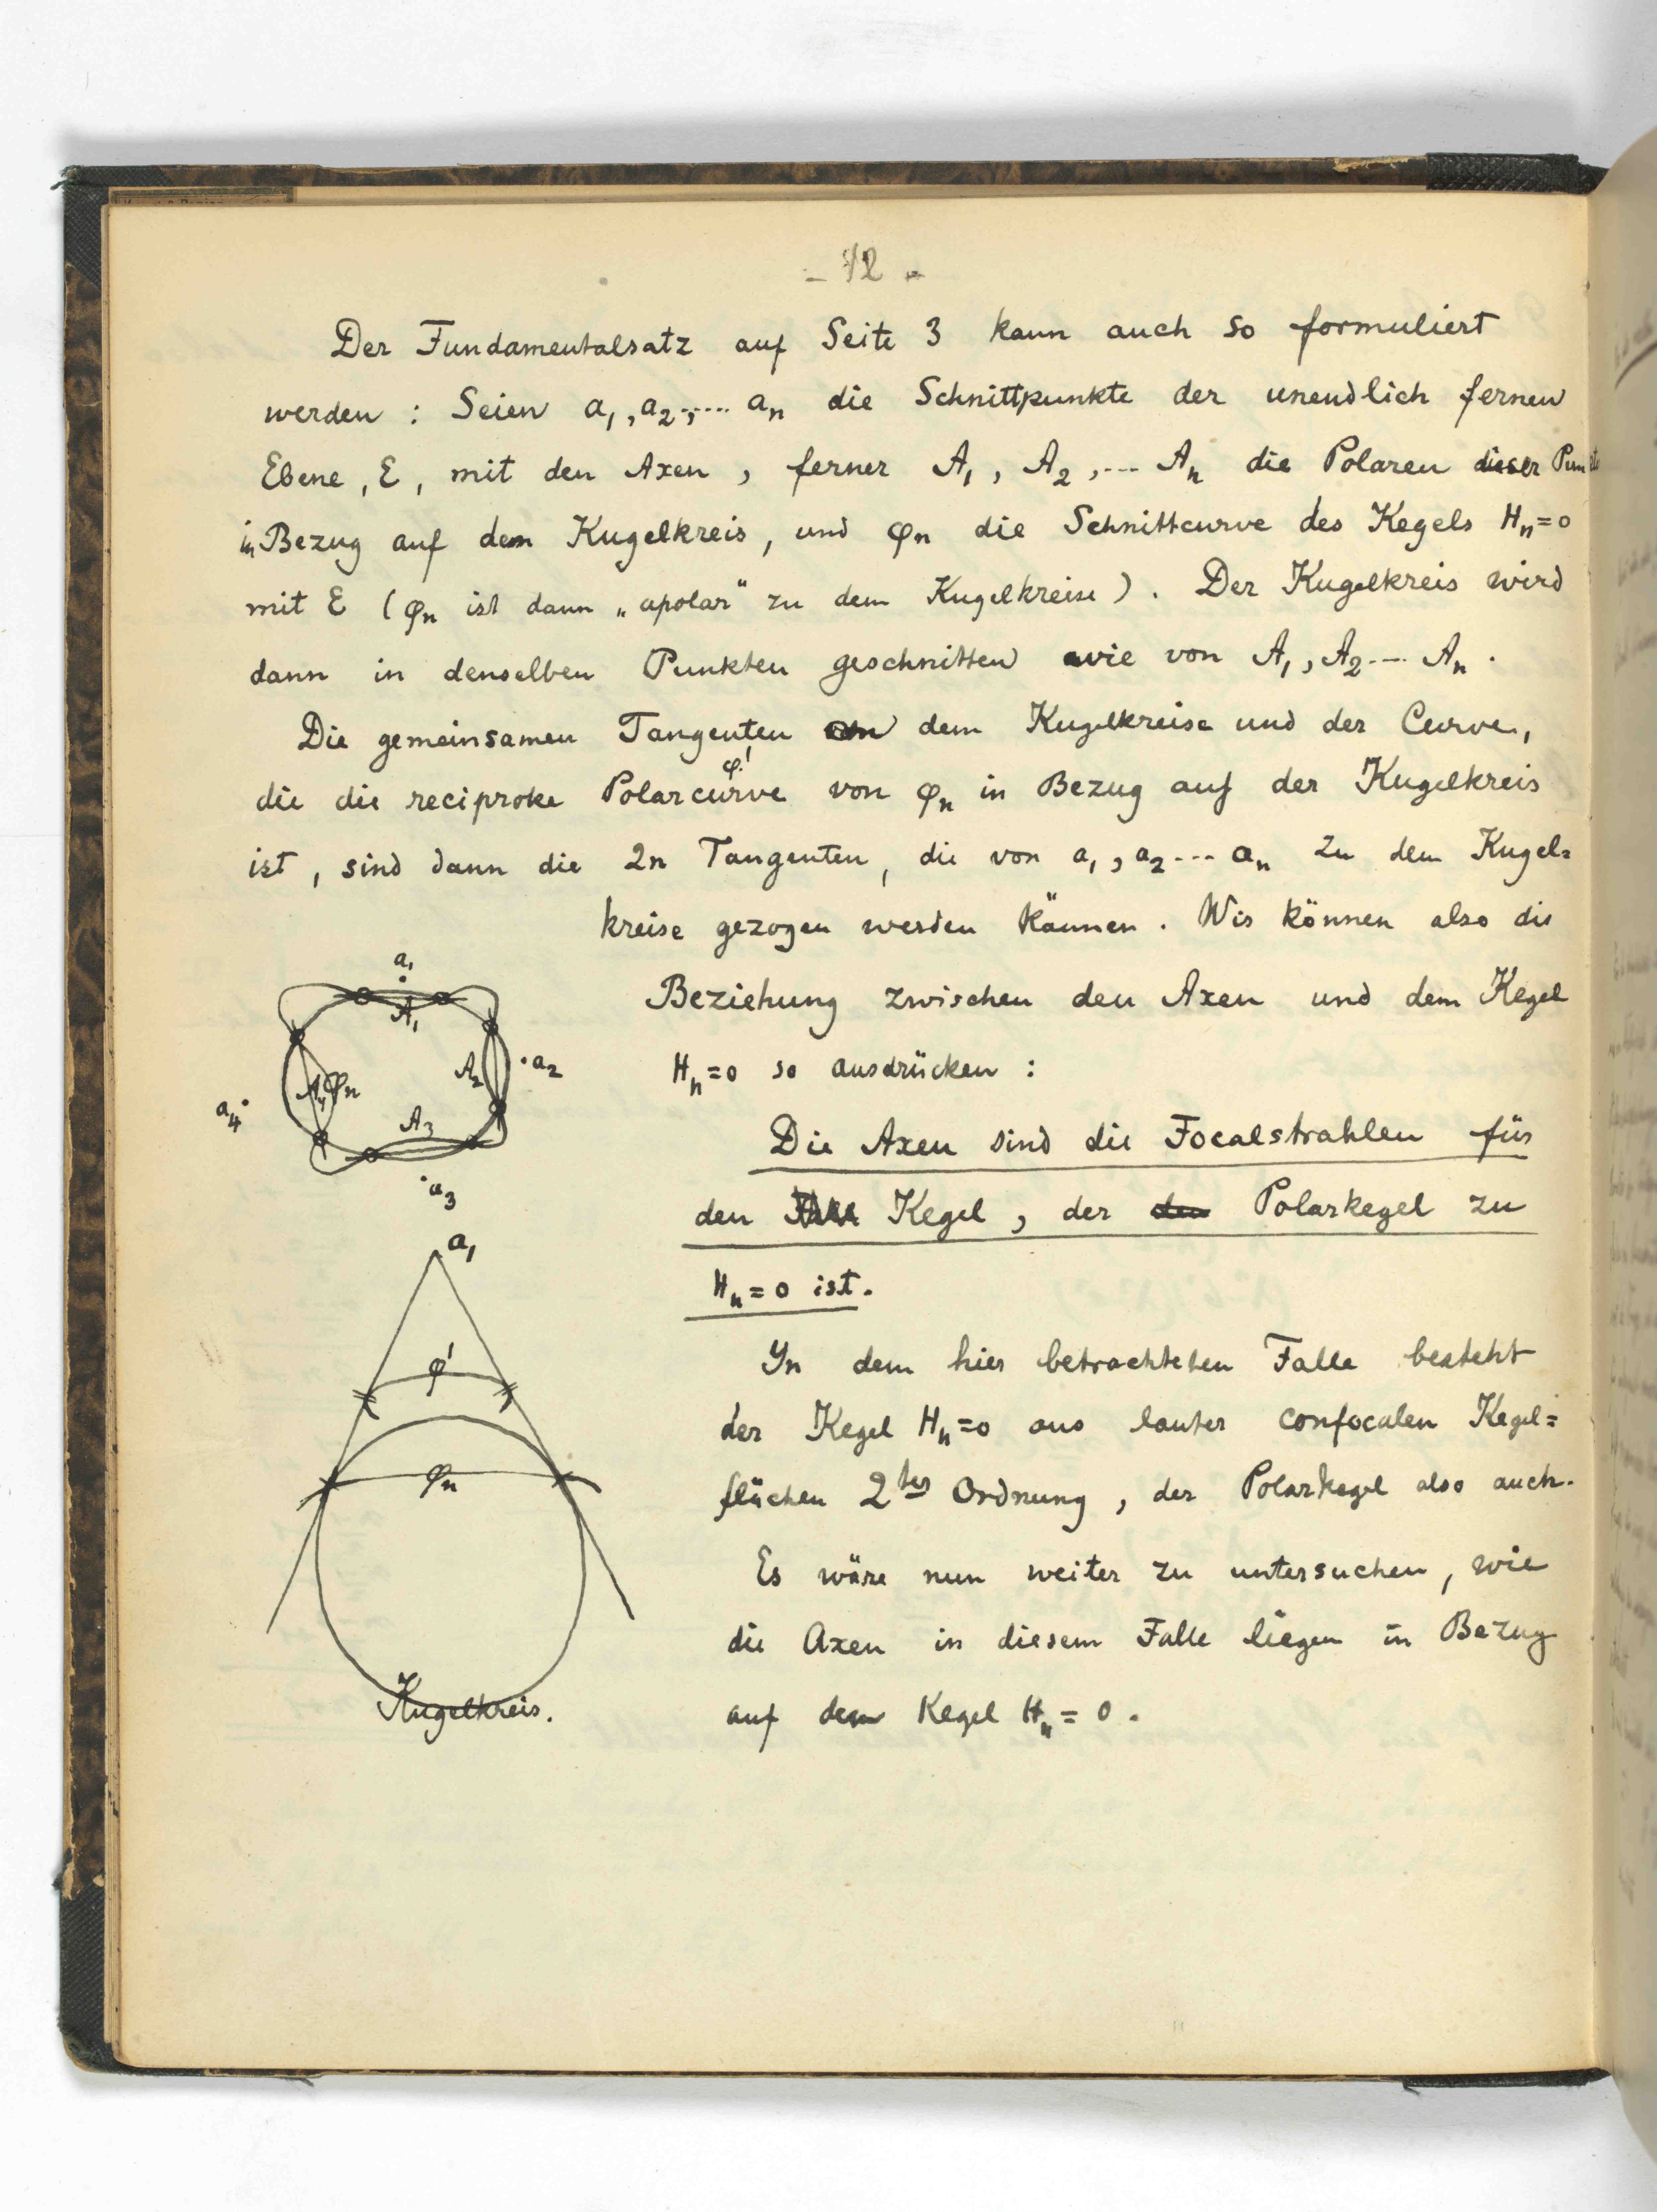 - 12 -
Der Fundamentalsatz auf Seite 3 kann auch so formuliert
werden : Seien a₁, a₂, ... aₙ die Schnittpunkte der unendlich fernen
Ebene, E, mit den Axen, ferner A₁, A₂, ... Aₙ die Polaren dieser Punkte
in Bezug auf dem Kugelkreis, und φₙ die Schnittcurve des Kegels Hₙ=0
mit E (φₙ ist dann „apolar" zu dem Kugelkreise). Der Kugelkreis wird
dann in denselben Punkten geschnitten wie von A₁, A₂ ... Aₙ.
Die gemeinsamen Tangenten dem Kugelkreise und der Curve,
φ'
die die reciproke Polarcurve von φₙ in Bezug auf der Kugelkreis
ist, sind dann die 2n Tangenten, die von a₁, a₂ ... aₙ zu dem Kugel=
kreise gezogen werden können. Wir können also die
Beziehung zwischen den Axen und dem Kegel
Hₙ=0 so ausdrücken :
Die Axen sind die Focalstrahlen für
den Kegel, der den Polarkegel zu
Hₙ=0 ist.
In dem hier betrachteten Falle besteht
der Kegel Hₙ=0 aus lauter confocalen Kegel=
flächen 2ter Ordnung, der Polarkegel also auch.
Es wäre nun weiter zu untersuchen, wie
die Axen in diesem Falle liegen in Bezug
auf dem Kegel Hₙ = 0.
a₁
A₁
A₂
a₂
A₄
φₙ
a₄
A₃
a₃
a₁
φ'
φₙ
Kugelkreis.